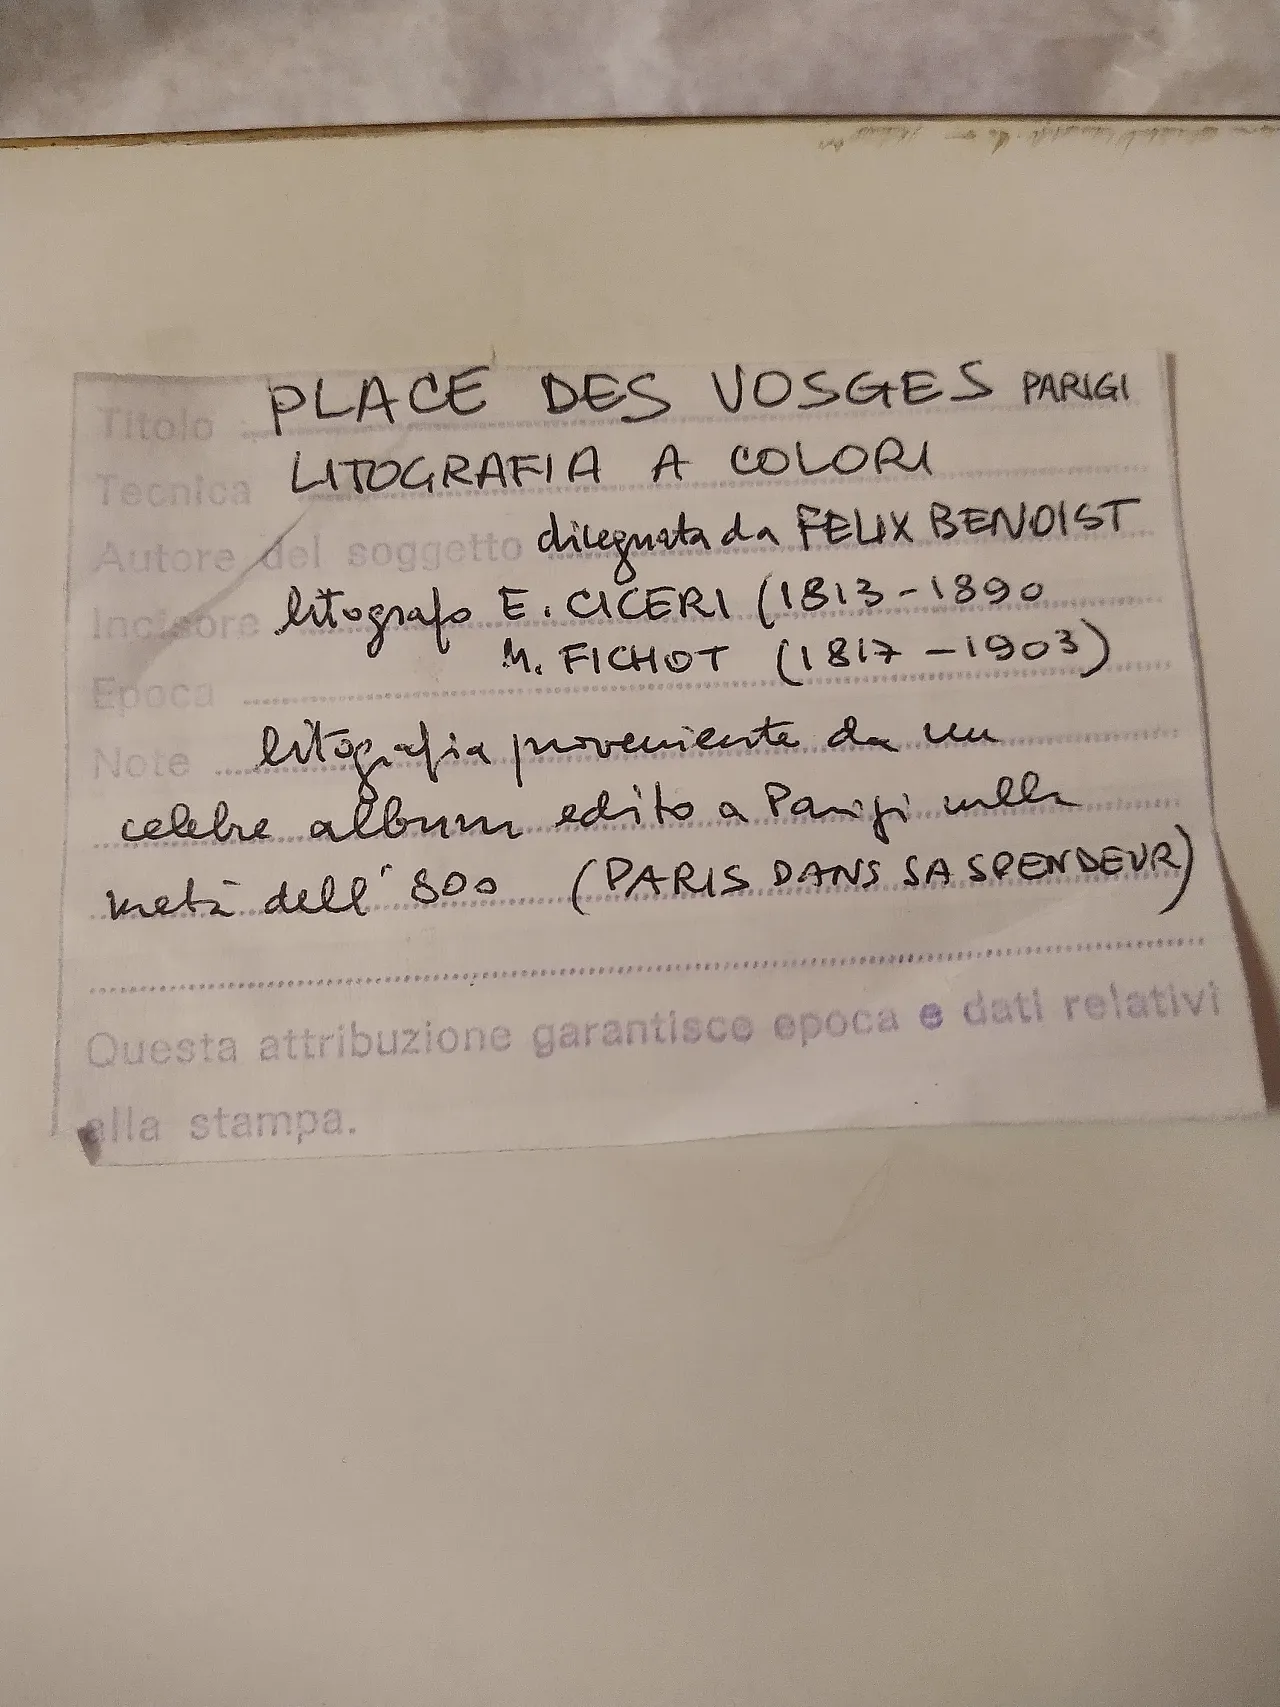 Titolo PLACE DES VOSGES PARIGI
Tecnica LITOGRAFIA A COLORI
Autore del soggetto disegnata da FELIX BENOIST
Incisore litografo E. CICERI (1813-1890
M. FICHOT (1817-1903)
Epoca
Note litografia proveniente da un
celebre album edito a Parigi nella
metà dell'800 (PARIS DANS SA SPENDEUR)
Questa attribuzione garantisce epoca e dati relativi
alla stampa.